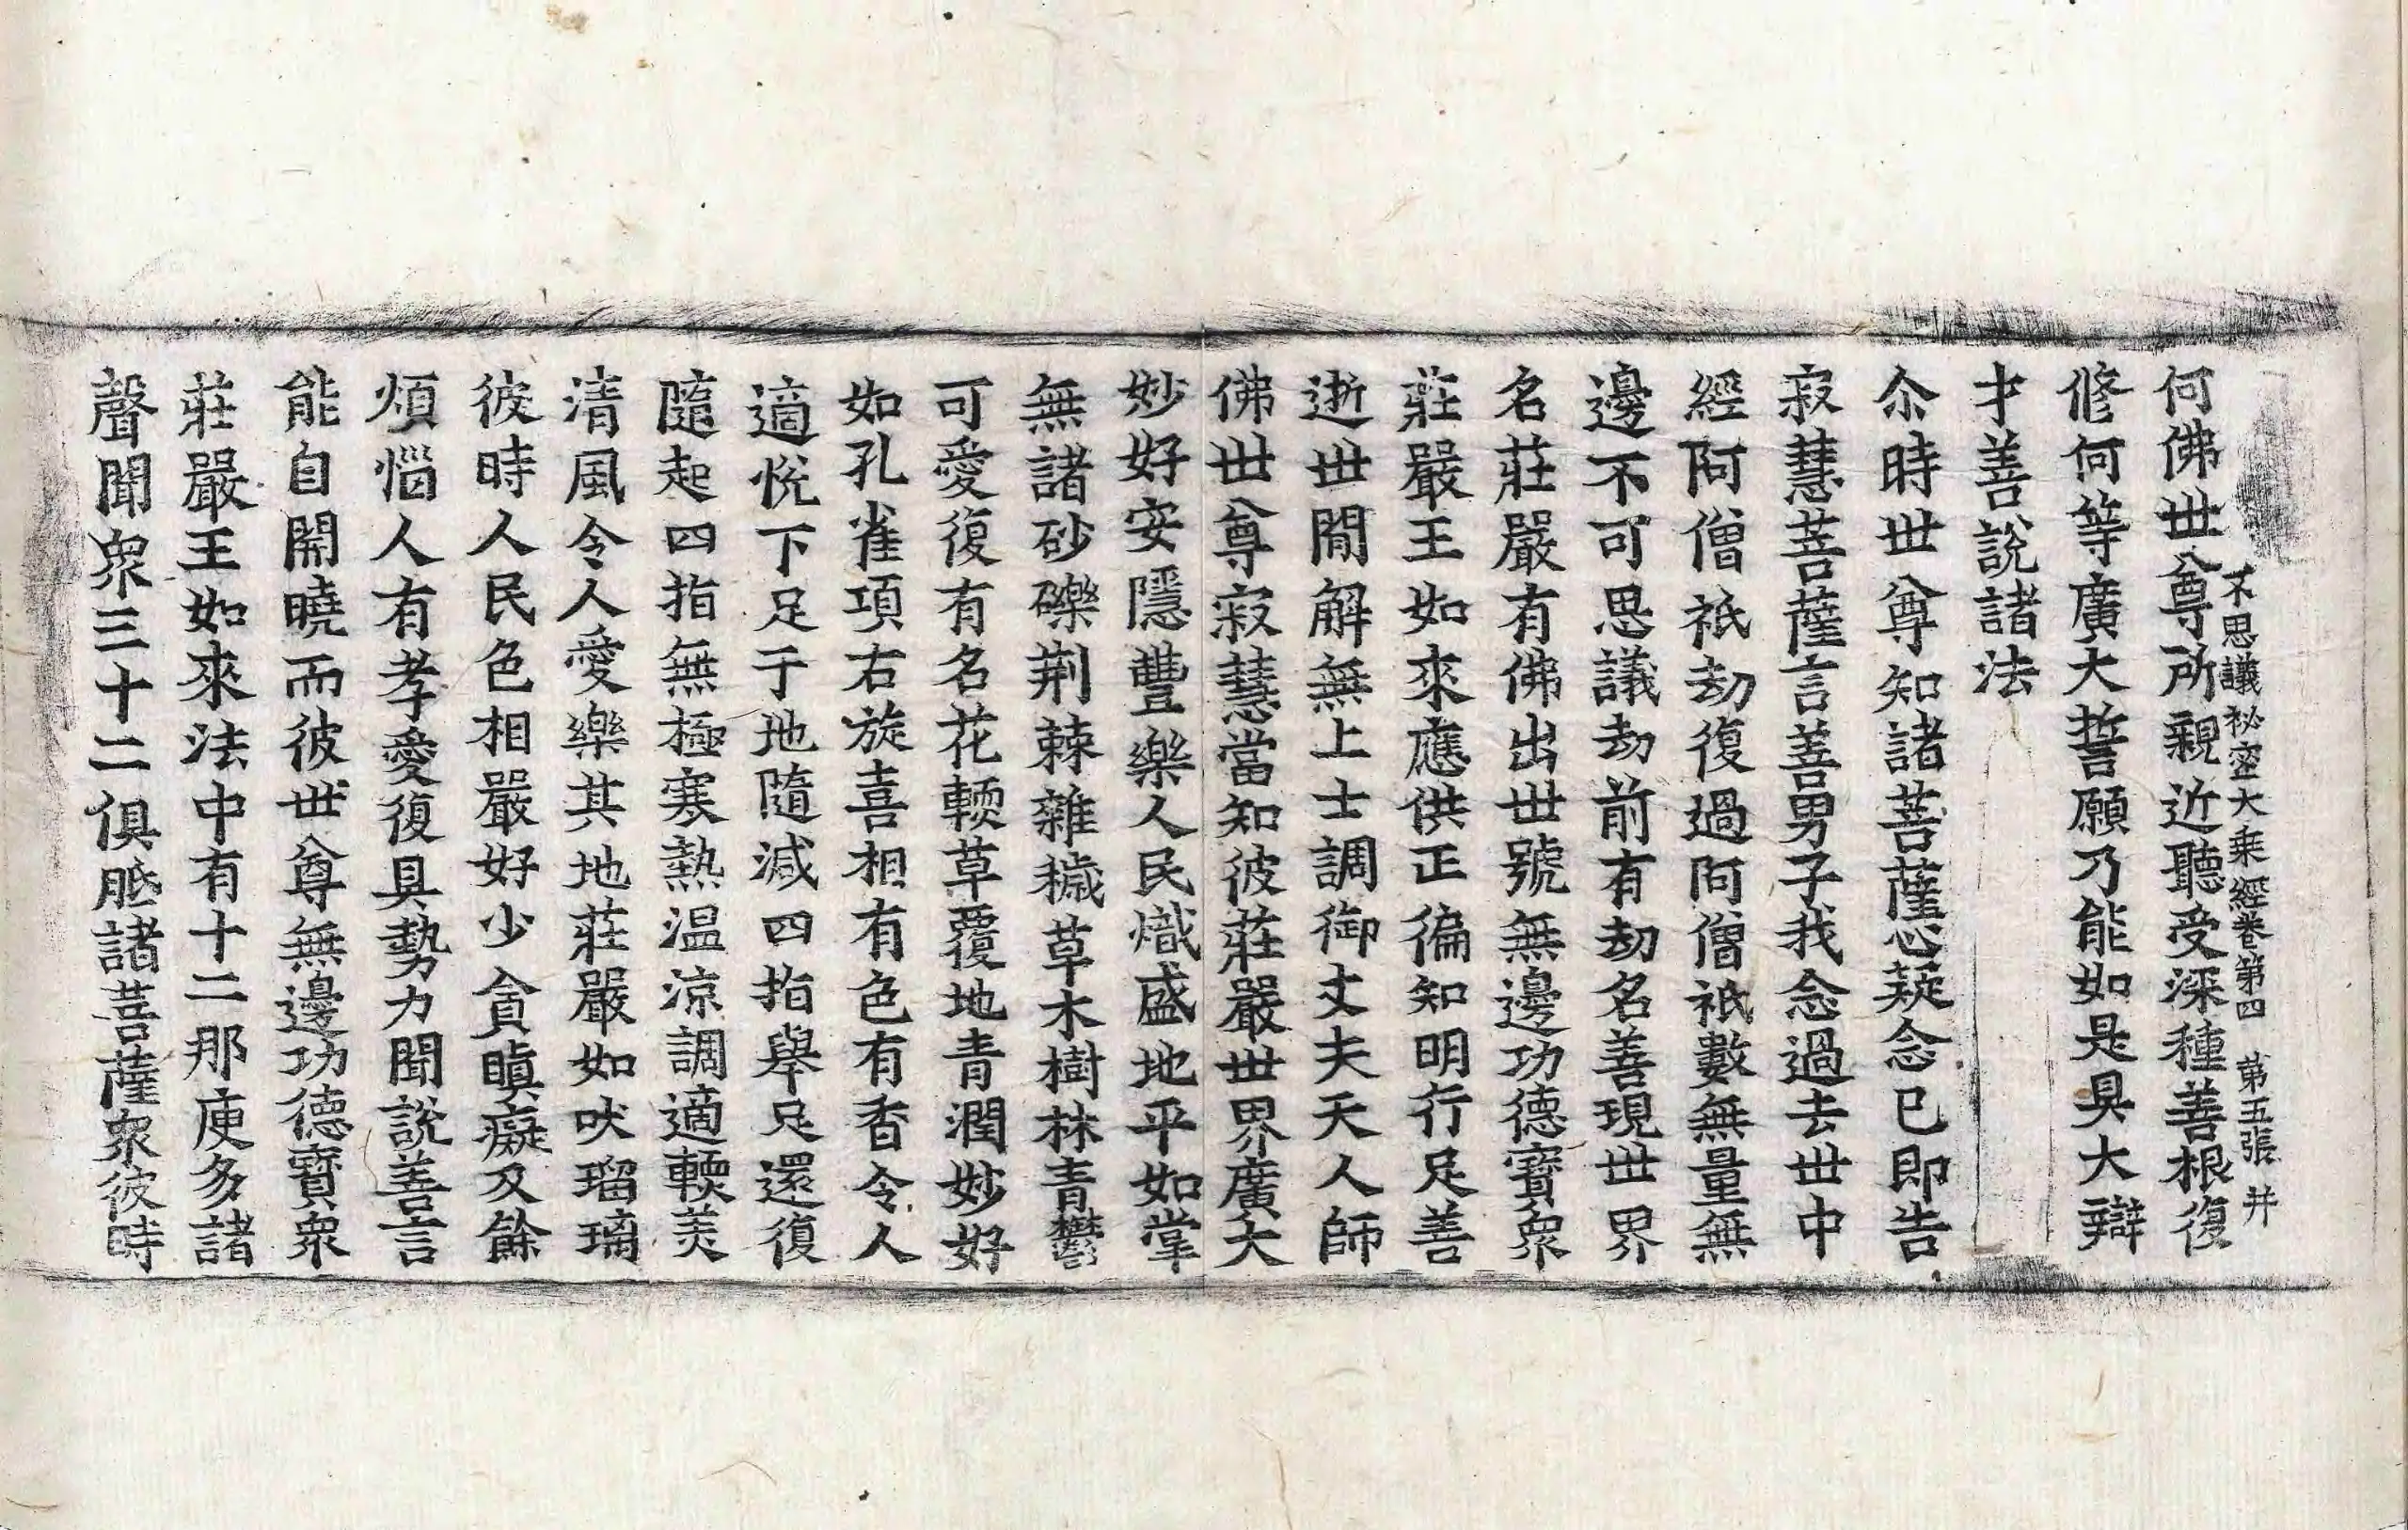 不思議秘密大乗經卷第四　第五張　井
何佛世尊所親近聽受深種善根復
修何等廣大誓願乃能如是具大辯
才善說諸法
尒時世尊知諸菩薩心疑念已即告
寂慧菩薩言善男子我念過去世中
經阿僧祇劫復過阿僧祇數無量無
邊不可思議劫前有劫名善現世界
名莊嚴有佛出世號無邊功德寶衆
莊嚴王如來應供正徧知明行足善
逝世閒解無上士調御丈夫天人師
佛世尊寂慧當知彼莊嚴世界廣大
妙好安隱豐樂人民熾盛地平如掌
無諸砂礫荆棘雜穢草木樹林青欝
可愛復有名花輭草覆地青潤妙好
如孔雀項右旋喜相有色有香令人
適悅下足于地隨減四指舉足還復
隨起四指無極寒熱温涼調適輭美
清風令人愛樂其地莊嚴如吠瑠璃
彼時人民色相嚴好少貪瞋癡及餘
煩惱人有孝愛復具勢力聞說善言
能自開曉而彼世尊無邊功德寶衆
莊嚴王如來法中有十二那庾多諸
聲聞衆三十二俱胝諸菩薩衆彼時